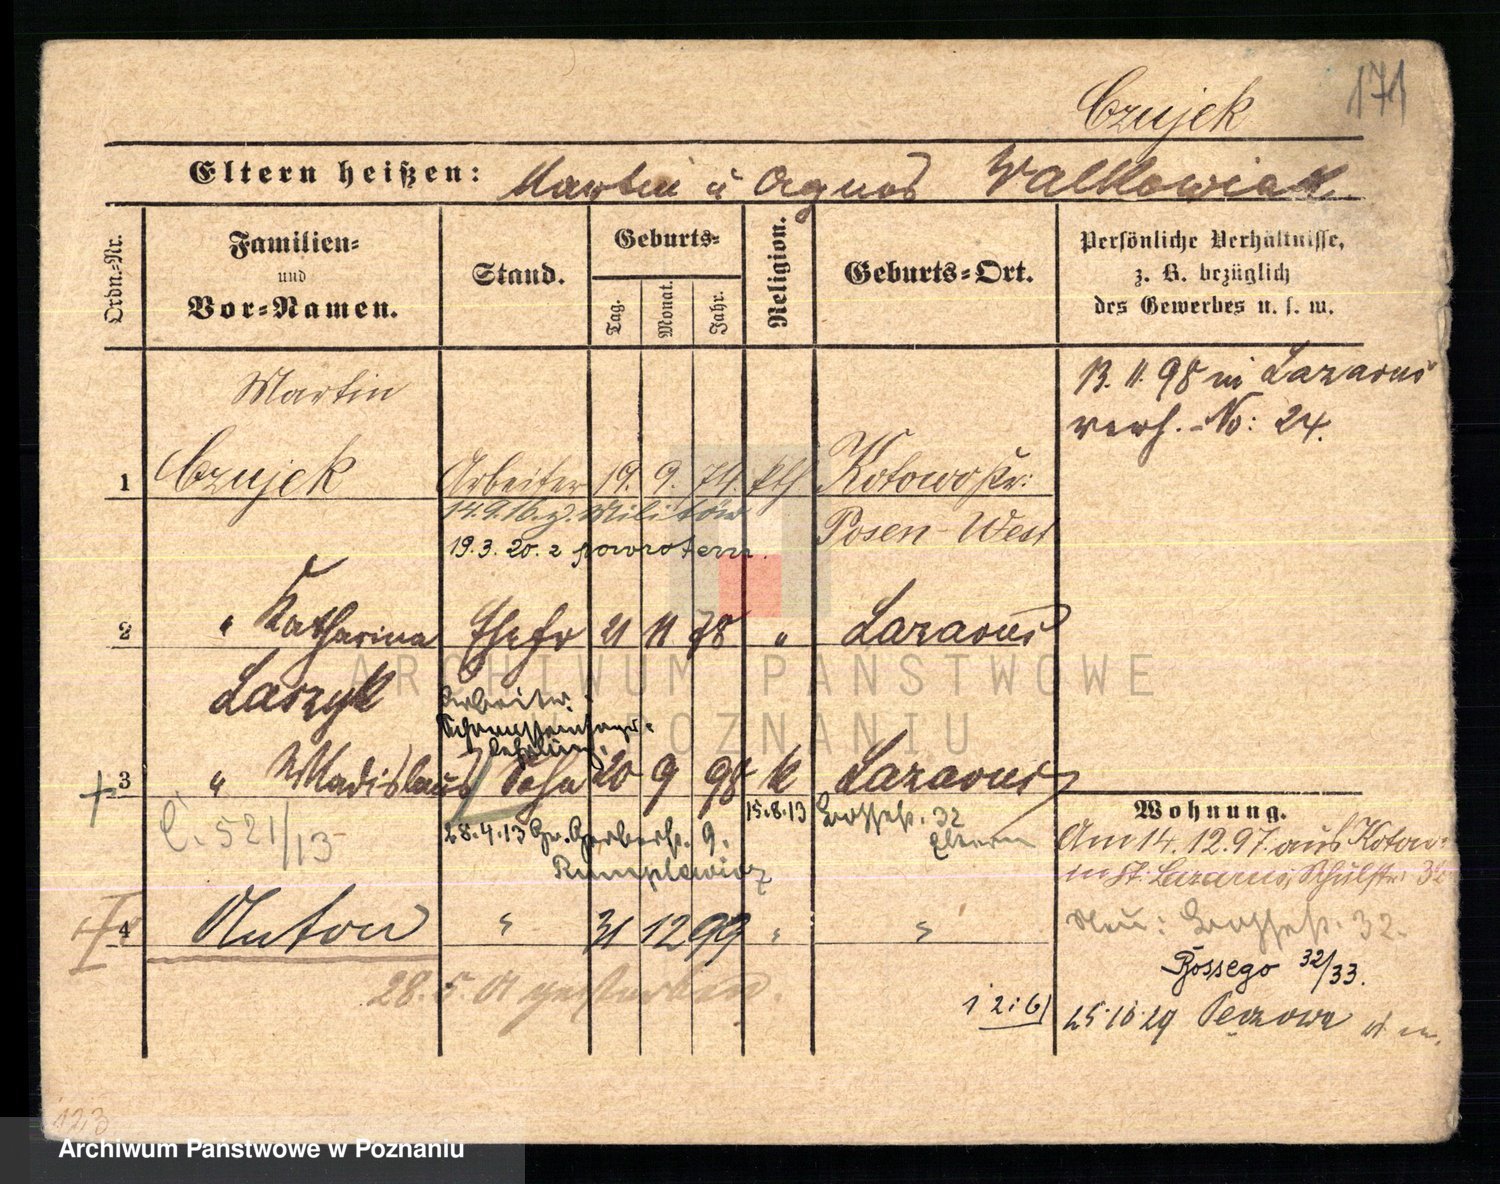 171
Czujek
Eltern heißen: Martin u Agnes Walkowiak
Ordn.-Nr.
Familien-
und
Vor-Namen.
Stand.
Geburts-
Tag.
Monat.
Jahr.
Religion.
Geburts-Ort.
Persönliche Verhältnisse,
z. B. bezüglich
des Gewerbes u. s. w.
13. 11. 98 in Lazarus
verh. No: 24.
Martin
1 Czujek Arbeiter 19. 9. 74. kth Kotowo Kr:
Posen-West
14.9.16. z. Militär
19.3.20. z powrotem.
2 " Katharina Ehefr 21 11 78 " Lazarus
Laszyk
Arbeiter
Schornsteinfeger-
lehrling.
3 " Wladislaus Sohn 20 9 98 k Lazarus
C. 521/13
28.4.13 Gr. Gerberstr. 9.
Rumplewicz
15.8.13 32
Eltern
4 Anton " 31 12 99 " "
28. 5. 01 gestorben.
1 2 i 6
Wohnung.
Am 14. 12. 97. aus Kotowo
in St. Lazarus, Schulstr. 32
Neu: 32.
Rossego 32/33.
25.10.29
123
ARCHIWUM PAŃSTWOWE
W POZNANIU
Archiwum Państwowe w Poznaniu